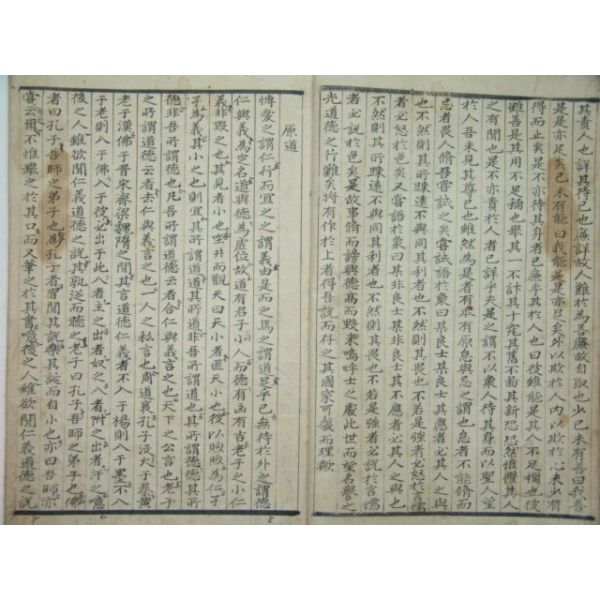 其責人也詳其待己也廉詳故人難於為善廉故自取也少己未有善曰我善
是是亦足矣己未有能曰我能是是亦足矣外以欺於人內以欺於心未少有
得而止矣是不亦待其身者已廉乎其於人也曰彼雖能是其人不足稱也彼
雖善是其用不足稱也舉其一不計其十究其舊不圖其新恐恐然惟懼其人
之有聞也是不亦責於人者已詳乎夫是之謂不以衆人待其身而以聖人望
於人吾未見其尊己也雖然為是者有本有原怠與忌之謂也怠者不能脩而
忌者畏人脩吾嘗試之矣嘗試語於衆曰某良士某良士其應者必其人之與
也不然則其所踈遠不與同其利者也不然則其畏也不若是强者必怒於言懦
者必怒於色矣又嘗語於衆曰某非良士某非良士其不應者必其人之與也
不然則其所踈遠不與同其利者也不然則其畏也不若是强者必說於言懦
者必說於色矣是故事脩而謗興德高而毀來嗚呼士之處此世而望名譽之
光道德之行難矣將有作於上者得吾說而存之其國家可幾而理歟
原道
博愛之謂仁行而宜之之謂義由是而之焉之謂道足乎己無待於外之謂德
仁與義為定名道與德為虛位故道有君子小人而德有凶有吉老子之小仁
義非毀之也其見者小也坐井而觀天曰天小者匪天小也彼以煦煦為仁孑
孑為義其小之也則宜其所謂道道其所道非吾所謂道也其所謂德德其所
德非吾所謂德也凡吾所謂道德云者合仁與義言之也天下之公言也老子
之所謂道德云者去仁與義言之也一人之私言也周道衰孔子没火于秦黃
老于漢佛于晋宋齊梁魏隋之間其言道德仁義者不入于楊則入于墨不入
于老則入于佛入于彼必出于此入者主之出者奴之入者附之出者汙之噫
後之人雖欲聞仁義道德之說其孰從而聽之老子曰孔子吾師之弟子也佛
者曰孔子吾師之弟子也為孔子者習聞其說樂其誕而自小也亦曰吾師亦
嘗云爾不惟舉之於其口而又筆之於其書噫後之人雖欲聞仁義道德之說